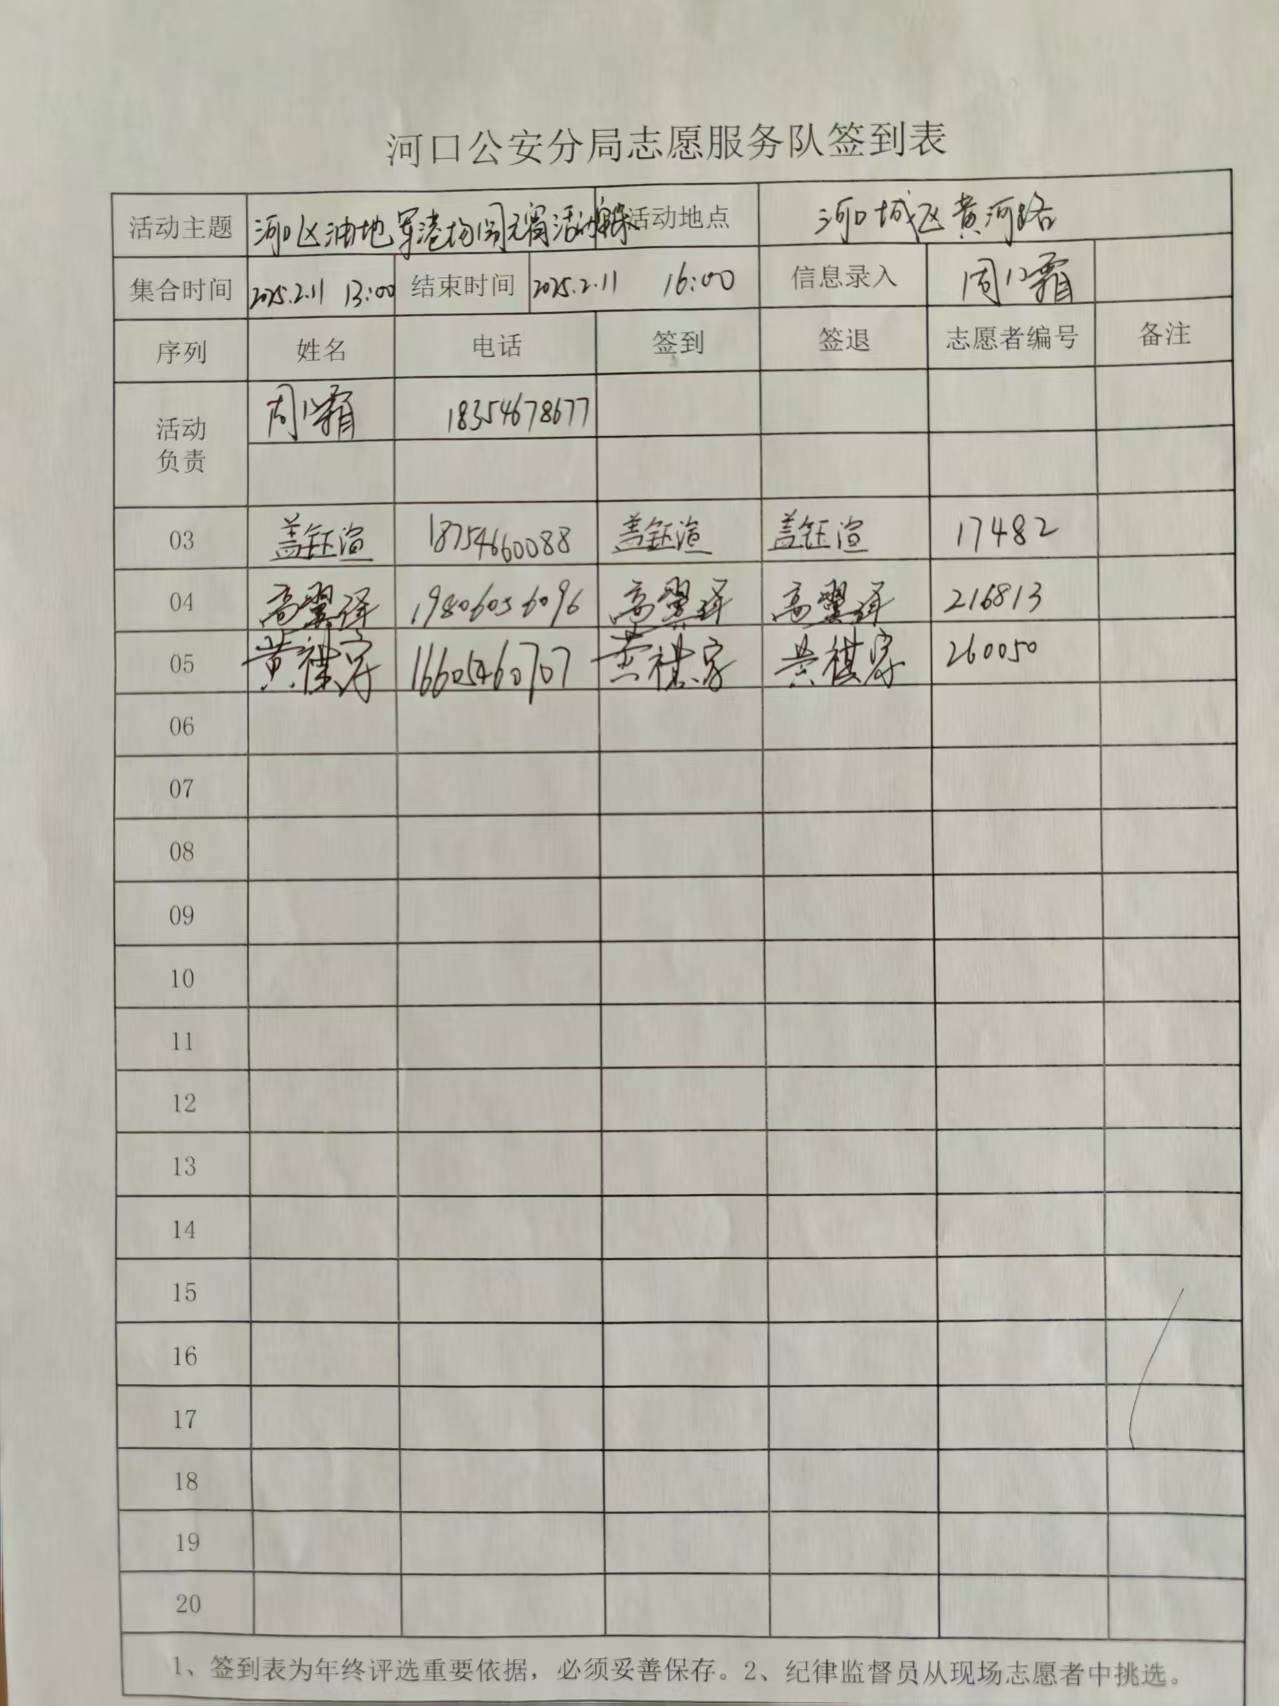 河口公安分局志愿服务队签到表
活动主题 河口区油地军港 元宵活动 活动地点 河口城区黄河路
集合时间 2025.2.11 13:00 结束时间 2025.2.11 16:00 信息录入 周小霜
序列 姓名 电话 签到 签退 志愿者编号 备注
活动负责 周小霜 18354678677
03 盖钰渲 18754660088 盖钰渲 盖钰渲 17482
04 高翼译 19806056096 高翼译 高翼译 216813
05 黄祺家 16605460707 黄祺家 黄祺家 260050
06
07
08
09
10
11
12
13
14
15
16
17
18
19
20
1、签到表为年终评选重要依据，必须妥善保存。2、纪律监督员从现场志愿者中挑选。